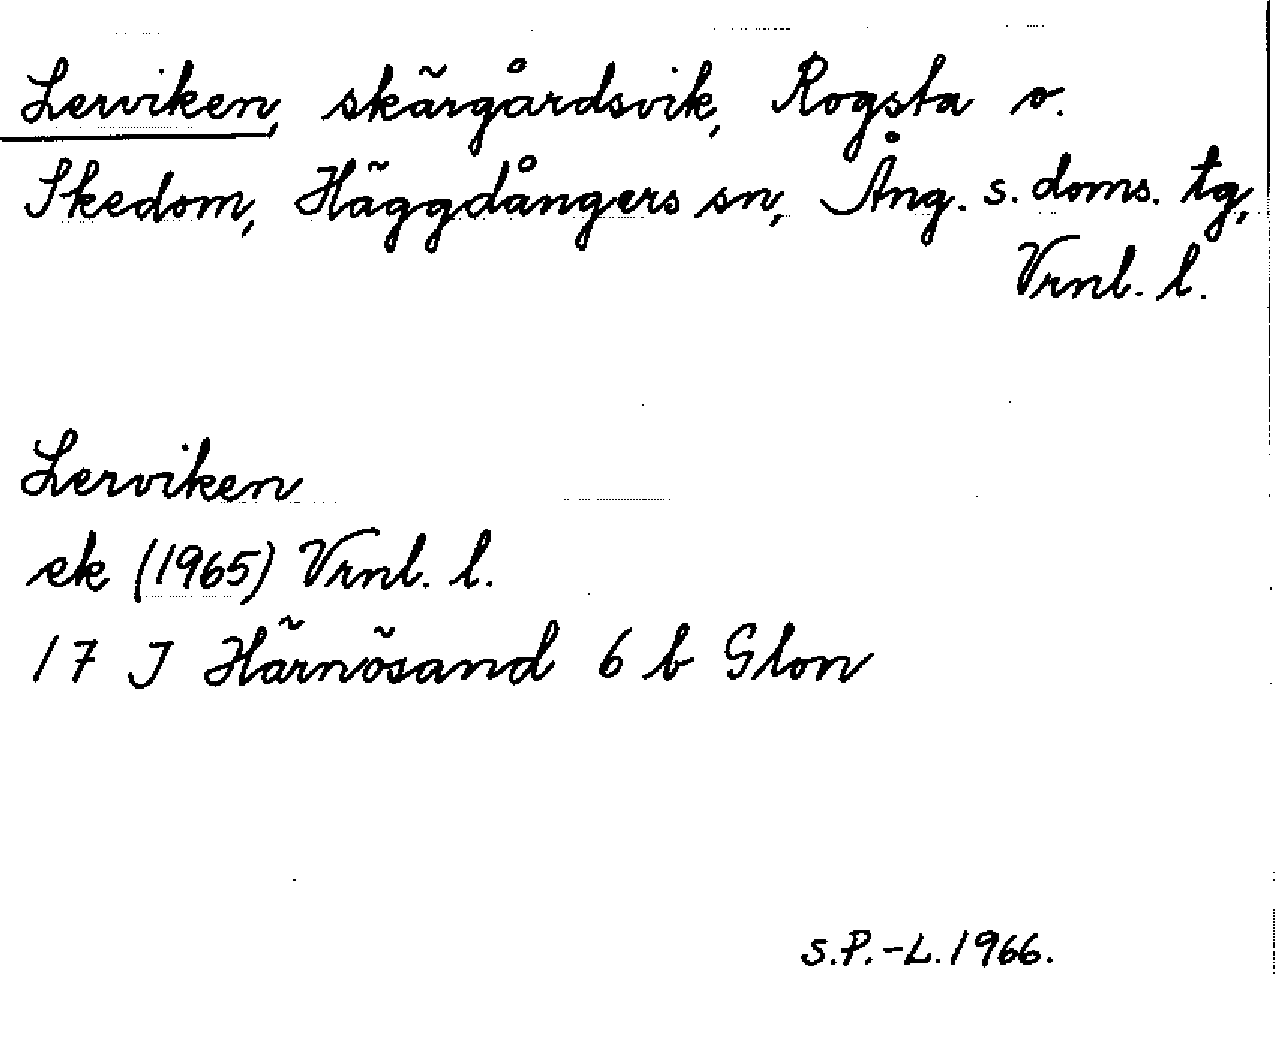 Lerviken, skärgårdsvik, Rogsta o.
Skedom, Häggdångers sn, Ång. s. doms. tg,
Vrnl. l.
Lerviken
ek (1965) Vrnl. l.
17 J Härnösand 6 b Glon
S.P.-L. 1966.